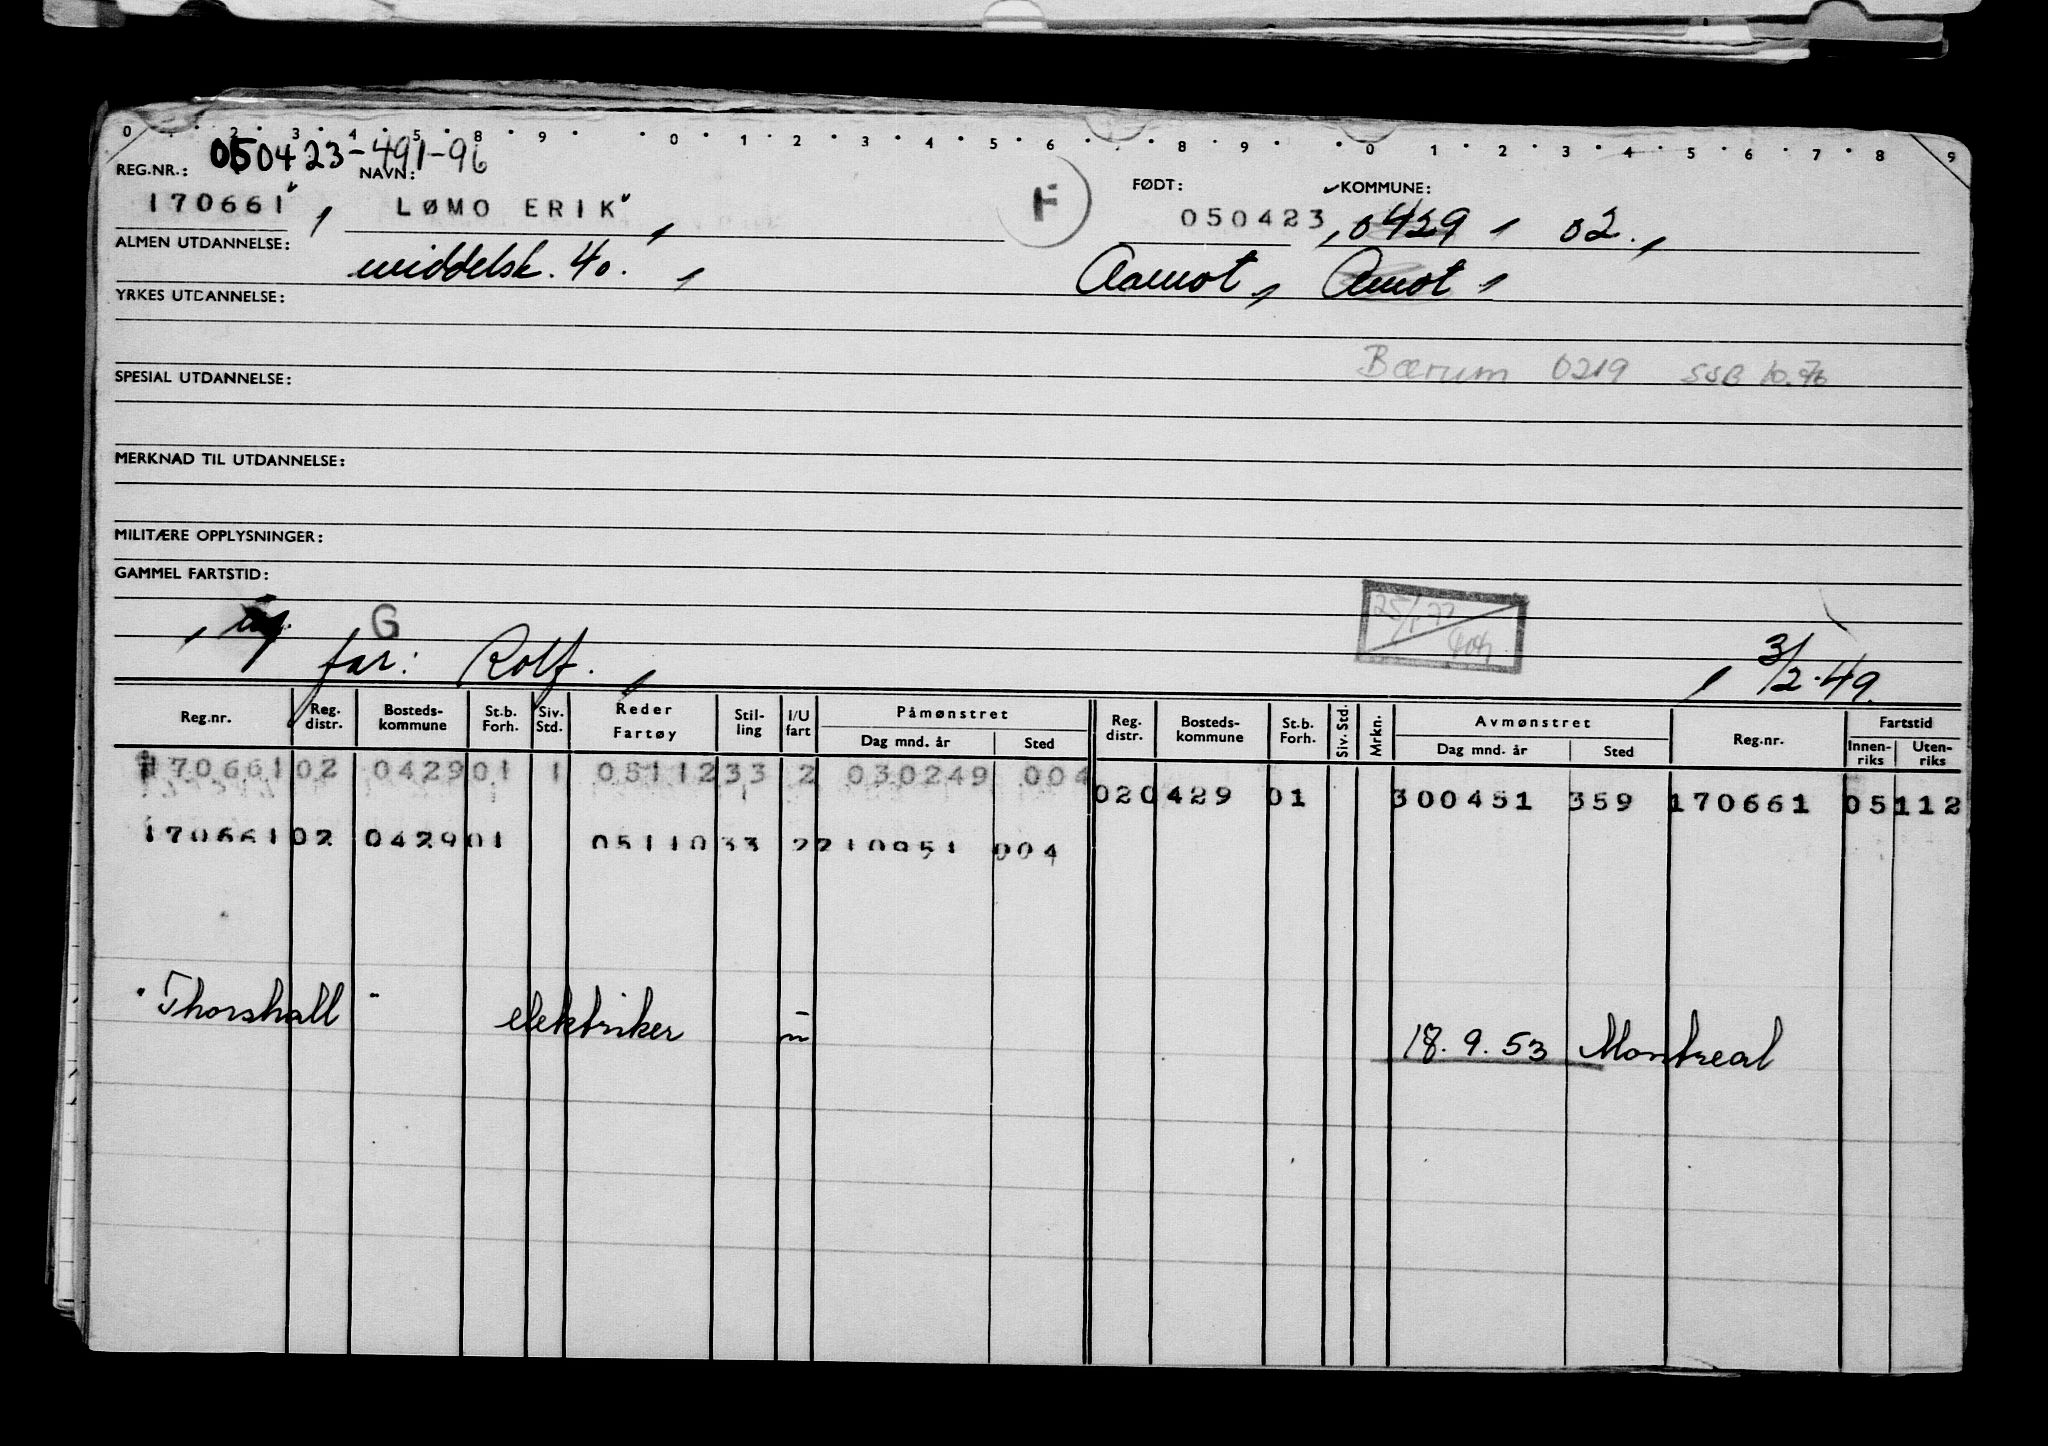 0 · 2 · 3 · 4 · 5 · 8 · 9 · · 0 · 1 · 2 · 3 · 4 · 5 · 6 · · 8 · 9 · · 0 · 1 · 2 · 3 · 4 · 5 · 6 · 7 · 8 · 9
REG.NR.: 050423-491-96 NAVN: FØDT: KOMMUNE:
170661 , LØMO ERIK , F 050423 , 0429 , 02. ,
ALMEN UTDANNELSE: middelsk. 40. , Aamot , Åmot ,
YRKES UTDANNELSE:
Bærum 0219 SSB 10.76
SPESIAL UTDANNELSE:
MERKNAD TIL UTDANNELSE:
MILITÆRE OPPLYSNINGER:
GAMMEL FARTSTID:
G
far: Rolf. , , 3/2-49.
Reg.nr. Reg. distr. Bosteds-kommune St.b. Forh. Siv. Std. Reder Fartøy Stil-ling I/U fart Påmønstret Dag mnd. år Sted Reg. distr. Bosteds-kommune St.b. Forh. Siv. Std. Mrkn. Avmønstret Dag mnd. år Sted Reg.nr. Fartstid Innen-riks Uten-riks
170661 02 0429 01 1 05112 33 2 030249 004
02 0429 01 300451 359 170661 05112
170661 02 0429 01 05110 33 2 210951 004
"Thorshall" elektriker u 18.9.53 Montreal